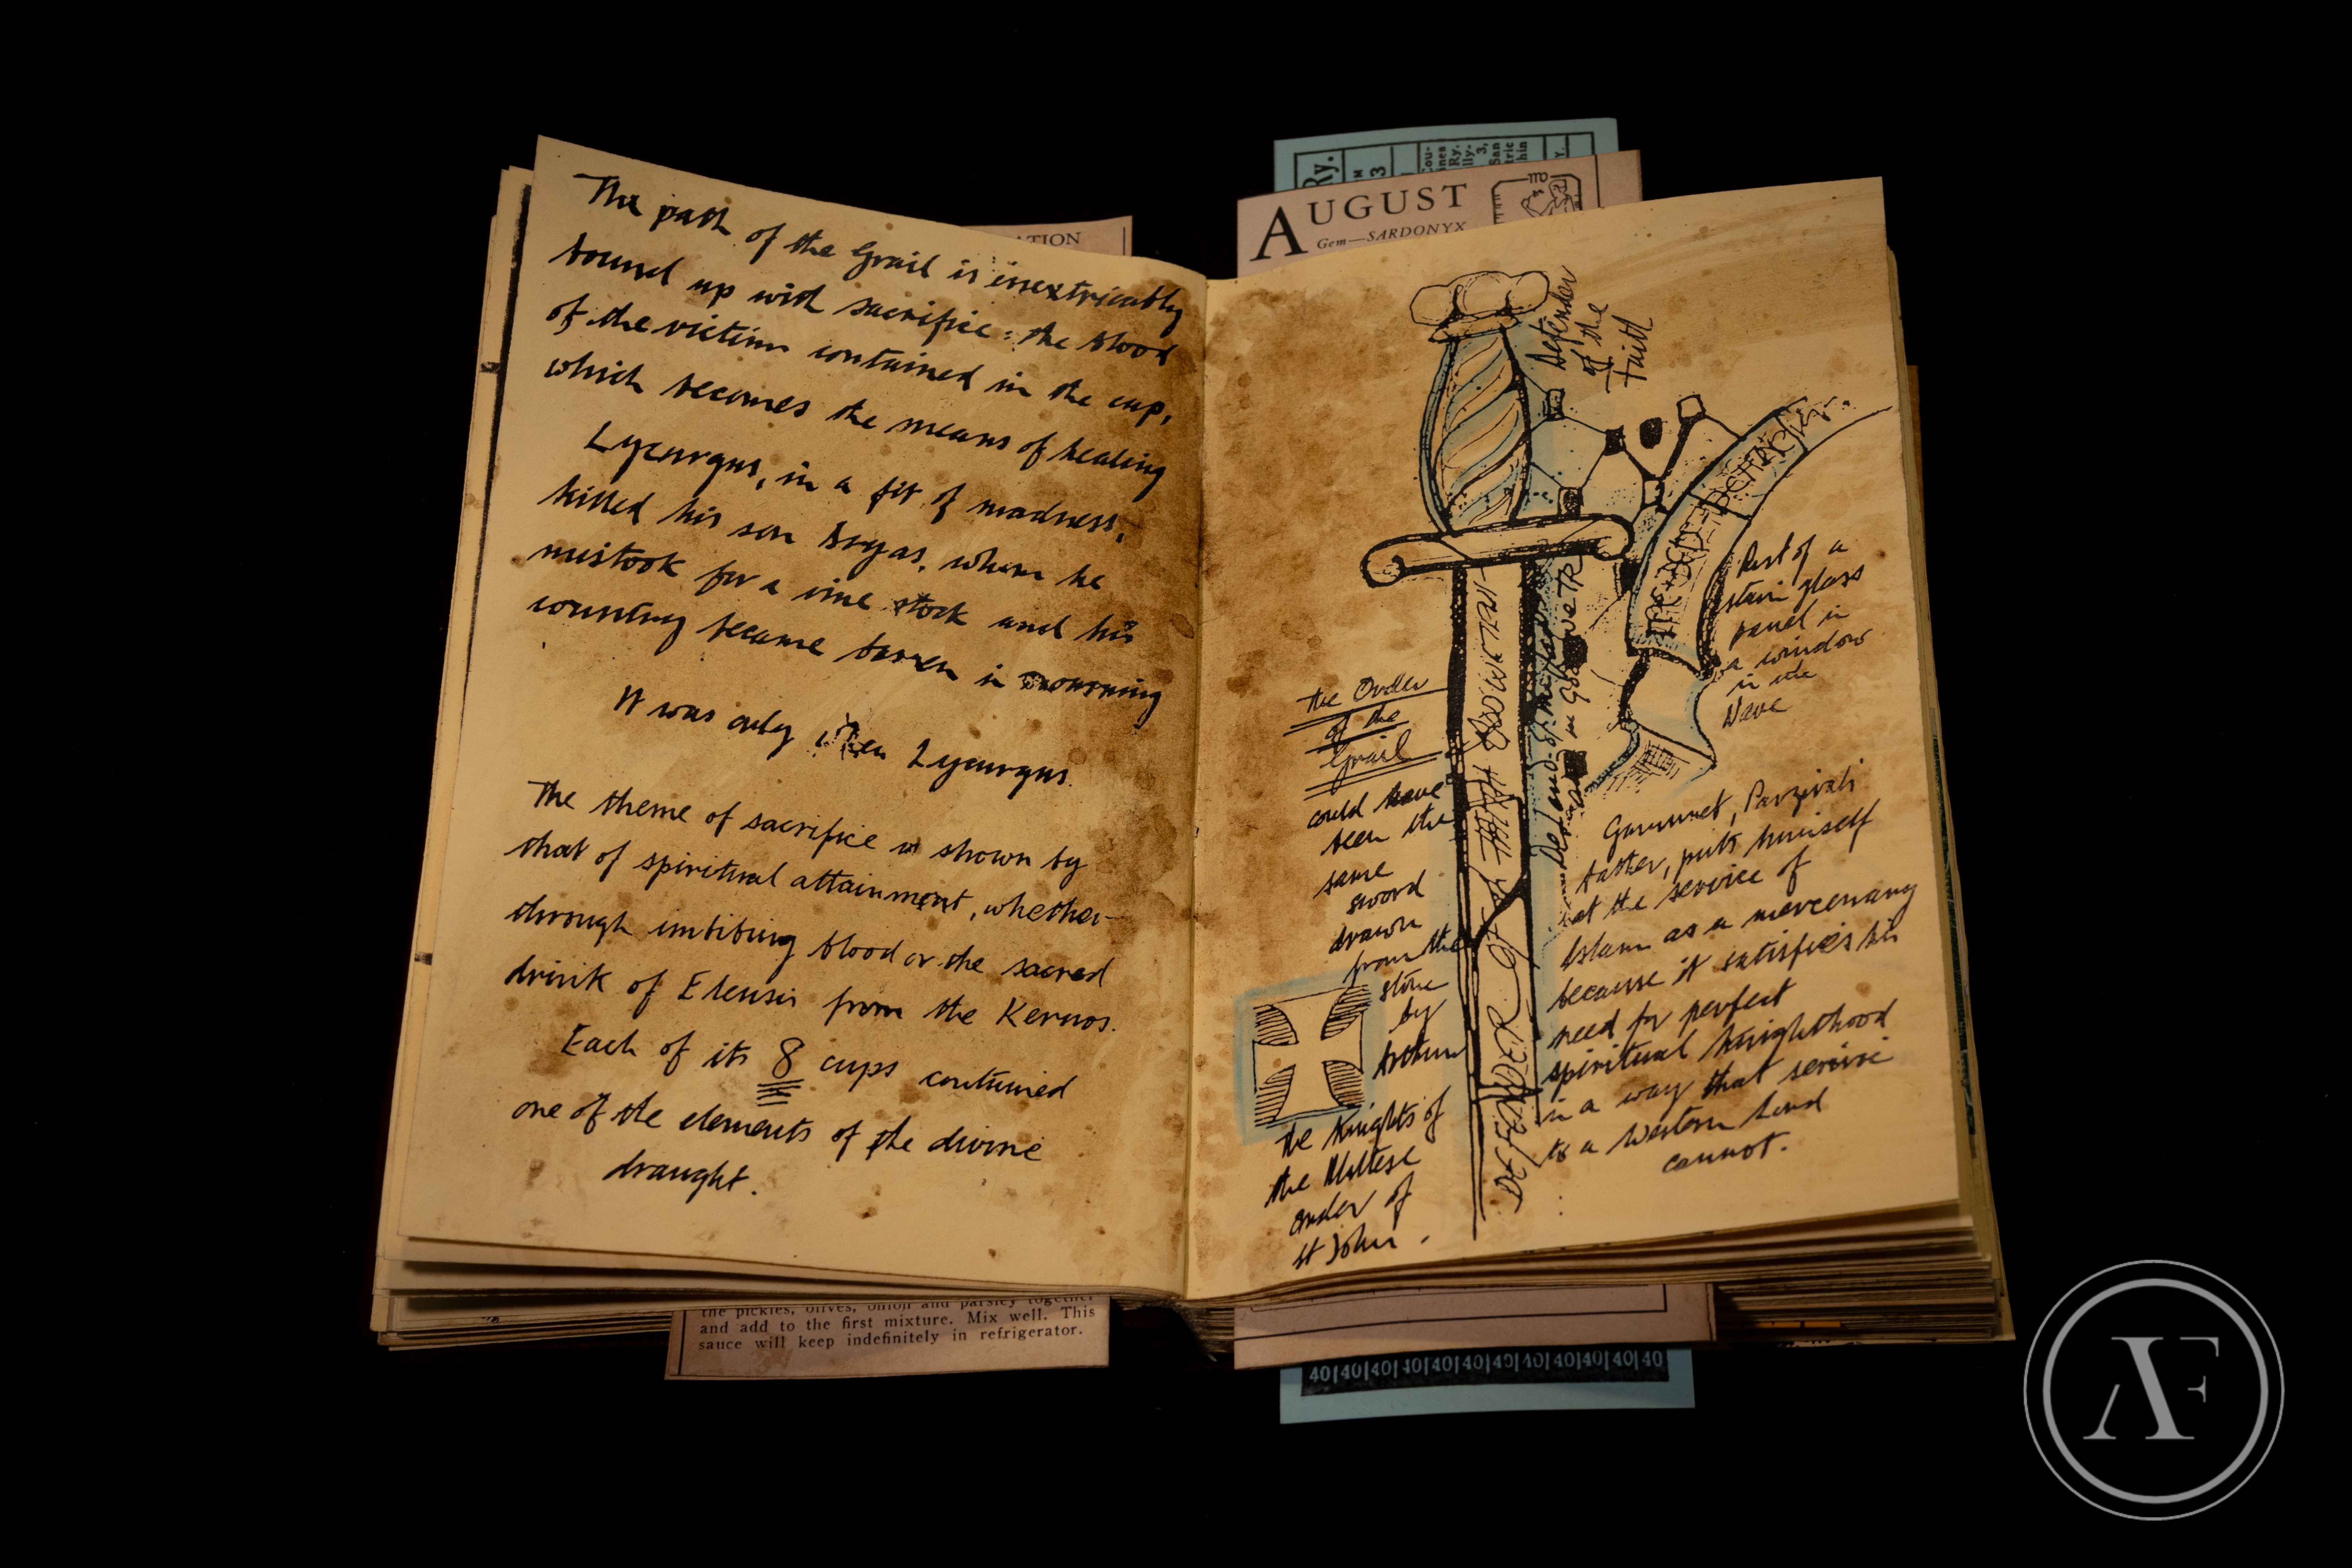 The path of the Grail is inextricably
bound up with sacrifice: the blood
of the victim contained in the cup,
which becomes the means of healing
Lycurgus, in a fit of madness,
killed his son Dryas, whom he
mistook for a vine stock and his
country became barren in mourning
It was only when Lycurgus.
The theme of sacrifice is shown by
that of spiritual attainment, whether
through imbibing blood or the sacred
drink of Eleusis from the Kernos.
Each of its 8 cups contained
one of the elements of the divine
draught.
ATION
the pickles, olives, onion and parsley together
and add to the first mixture. Mix well. This
sauce will keep indefinitely in refrigerator.
Ry.
3
AUGUST
Gem—SARDONYX
Defender
of the
Faith
Part of a
stain glass
panel in
a window
in the
Nave
the Order
of the
Grail
could have
been the
same
sword
drawn
from the
stone
by
Arthur
The Knights of
the Maltese
order of
St John.
DEFENDER OF THE FAITH
Gamuret, Parzival's
father, puts himself
at the service of
Islam as a mercenary
because it satisfies his
need for perfect
spiritual knighthood
in a way that service
to a Western Lord
cannot.
40|40|40|40|40|40|40|40|40|40|40|40
AF